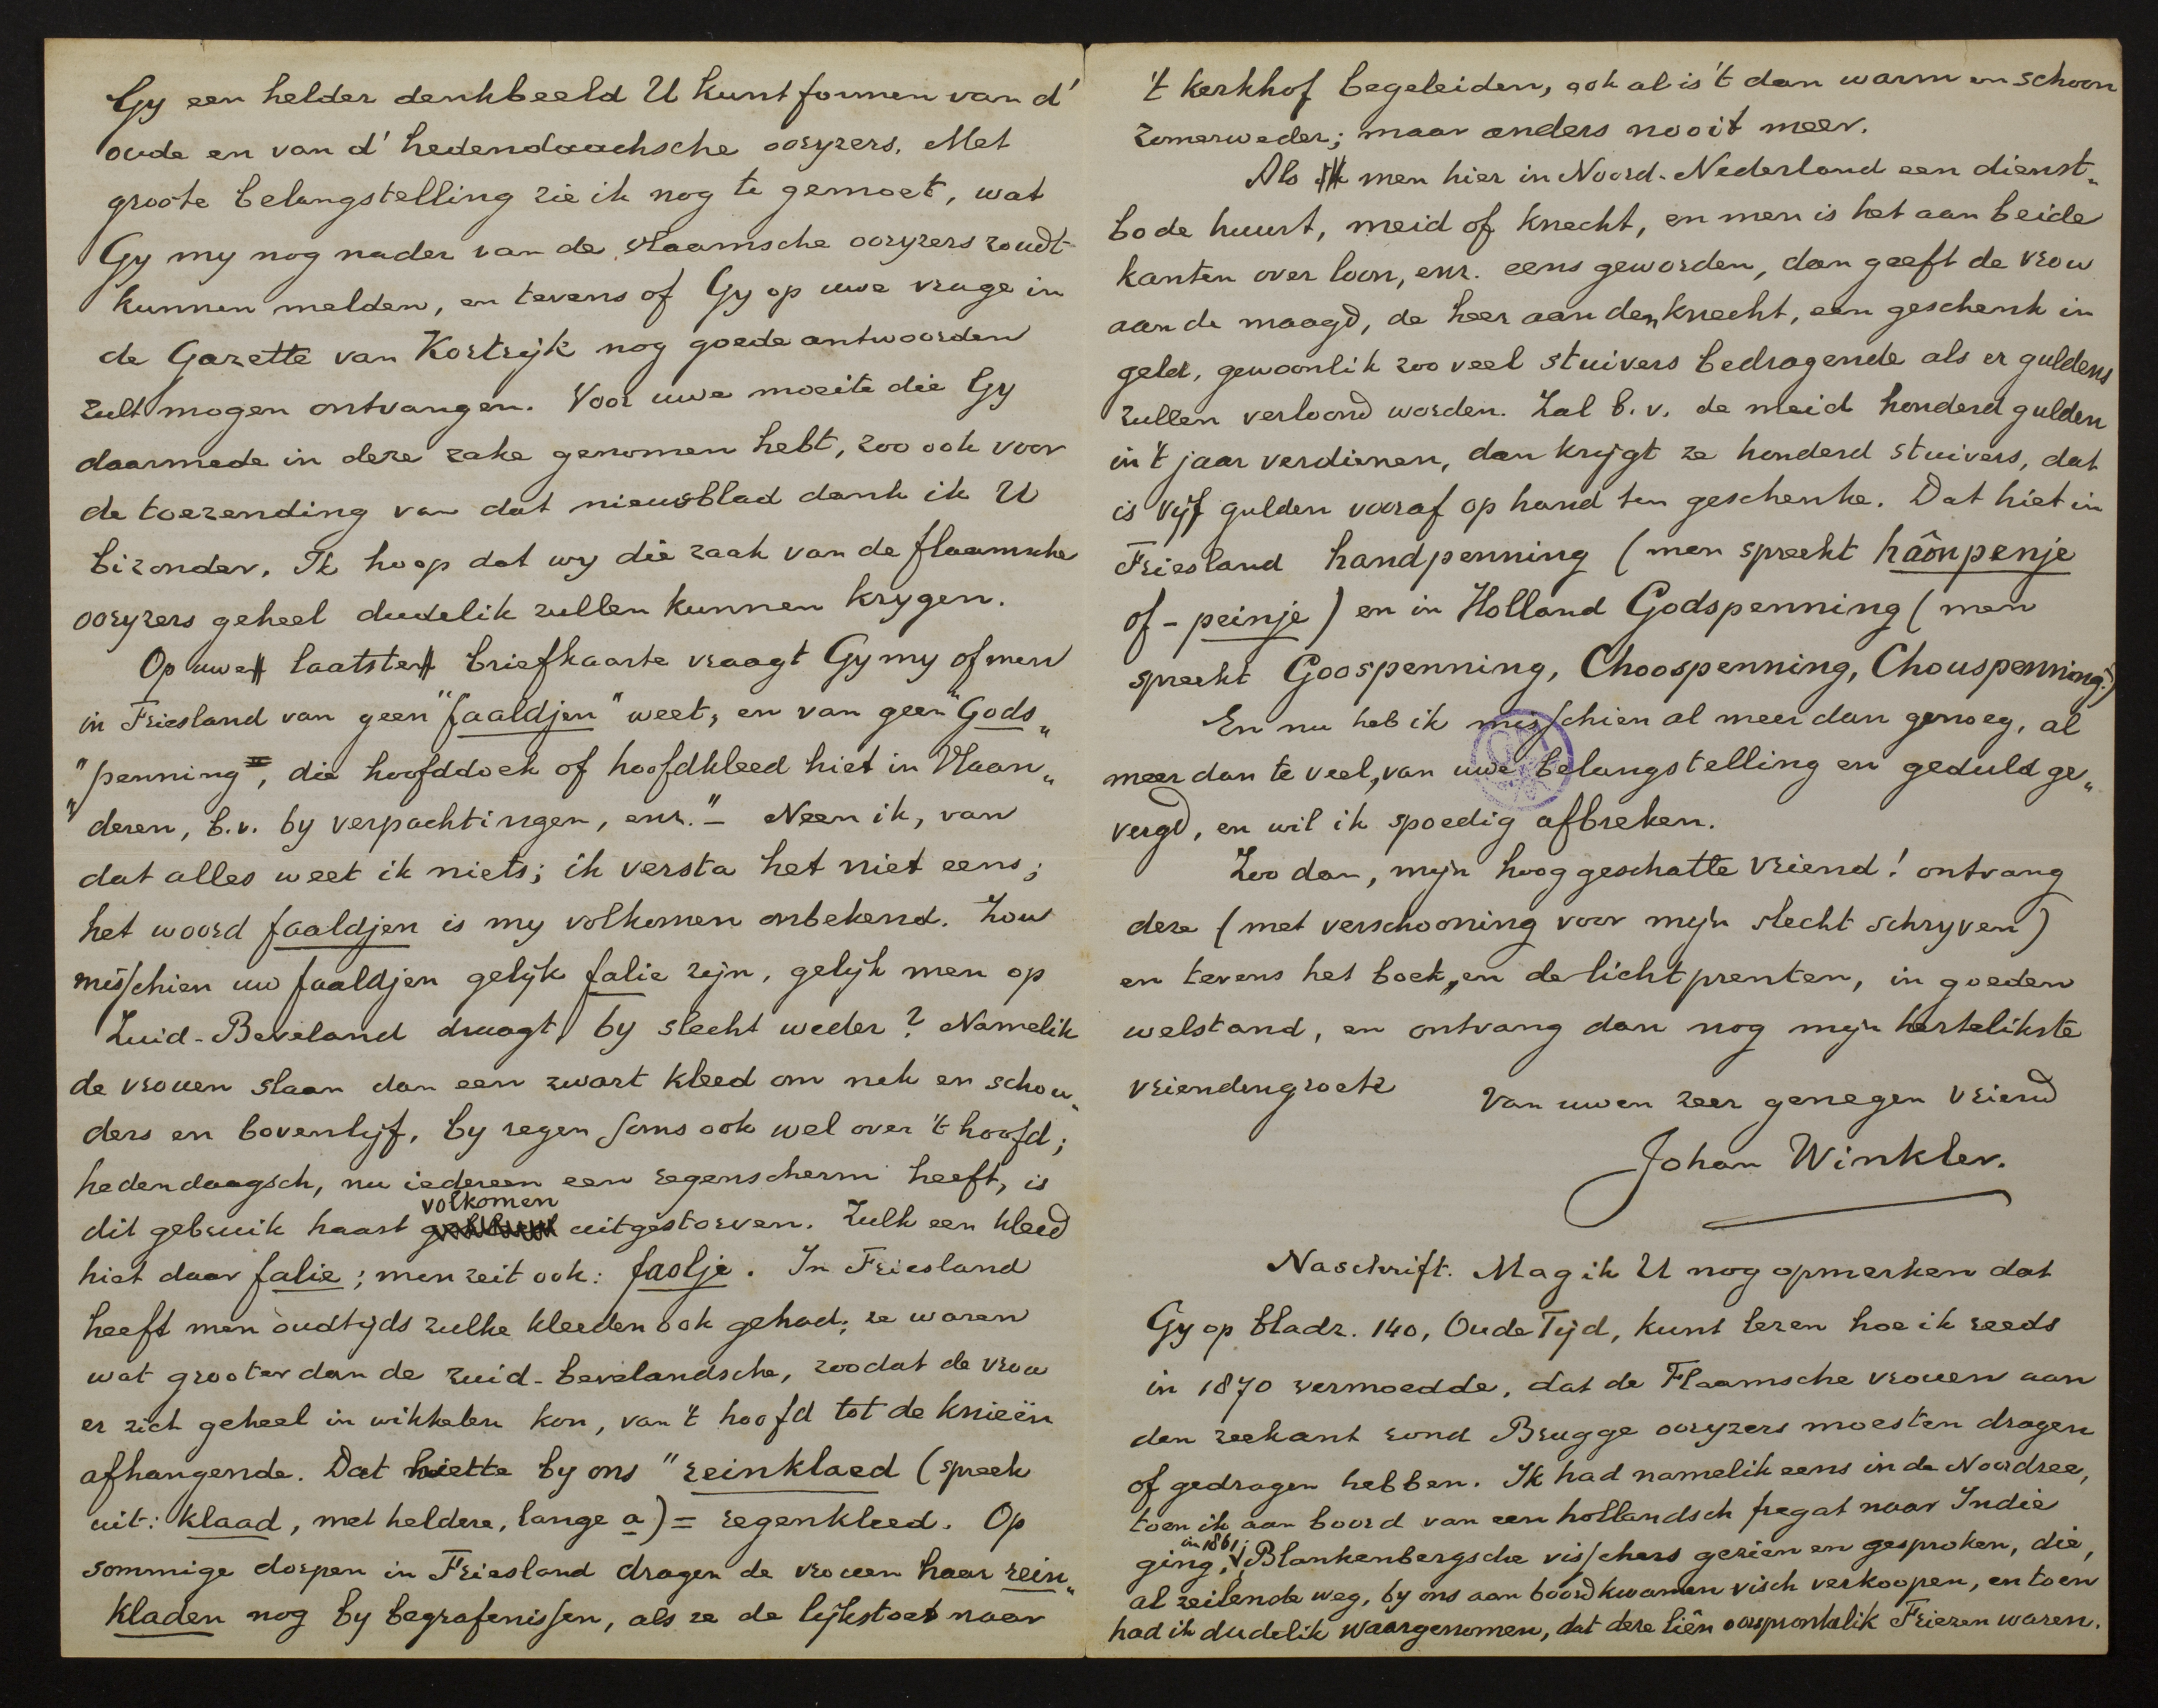 Gy een helder denkbeeld U kunt formen van d'
oude en van d' hedendaachsche ooryzers. Met
groote belangstelling zie ik nog te gemoet, wat
Gy my nog nader van de vlaamsche ooryzers zoudt
kunnen melden, en tevens of Gy op uwe vrage in
de Gazette van Kortryk nog goede antwoorden
zult mogen ontvangen. Voor uwe moeite die Gy
daarmede in deze zake genomen hebt, zoo ook voor
de toezending van dat nieuwsblad dank ik U
bizonder. Ik hoop dat wy die zaak van de flaamsche
ooryzers geheel dudelik zullen kunnen krygen.
Op uwe laatste briefkaarte vraagt Gy my of men
in Friesland van geen "faaldjen" weet, en van geen "Gods„
"penning", die hoofddoek of hoofdkleed hiet in Vlaan„
"deren, b.v. by verpachtingen, enz." – Neen ik, van
dat alles weet ik niets; ik versta het niet eens;
het woord faaldjen is my volkomen onbekend. Zou
misschien uw faaldjen gelyk falie zijn, gelyk men op
Zuid-Beveland draagt by slecht weder? Namelik
de vrouen slaan dan een zwart kleed om nek en schou„
ders en bovenlyf, by regen soms ook wel over 't hoofd;
hedendaagsch, nu iedereen een regenscherm heeft, is
volkomen
dit gebruik haast uitgestorven. Zulk een kleed
hiet daar falie; men zeit ook: faolje. In Friesland
heeft men oudtyds zulke kleeden ook gehad; ze waren
wat grooter dan de zuid-bevelandsche, zoodat de vrou
er zich geheel in wikkelen kon, van 't hoofd tot de knieën
afhangende. Dat hiette by ons "reinklaed (spreek
uit: klaad, met heldere, lange a) = regenkleed. Op
sommige dorpen in Friesland dragen de vrouen haar rein„
kladen nog by begrafenissen, als ze de lykstoet naar
't kerkhof begeleiden, ook al is 't dan warm en schoon
zomerweder; maar anders nooit meer.
Als men hier in Noord-Nederland een dienst„
bode huurt, meid of knecht, en men is het aan beide
kanten over loon, enz. eens geworden, dan geeft de vrou
aan de maagd, de heer aan den knecht, een geschenk in
geld, gewoonlik zoo veel stuivers bedragende als er guldens
zullen verloond worden. Zal b.v. de meid honderd gulden
in 't jaar verdienen, dan krygt ze honderd stuivers, dat
is vyf gulden vooraf op hand ten geschenke. Dat hiet in
Friesland handpenning (men spreekt hâonpenje
of -peinje) en in Holland Godspenning (men
spreekt Goospenning, Choospenning, Chouspenning.)
En nu heb ik misschien al meer dan genoeg, al
meer dan te veel, van uwe belangstelling en geduld ge„
vergd, en wil ik spoedig afbreken.
Zoo dan, mijn hoog geschatte vriend! ontvang
deze (met verschooning voor mijn slecht schryven)
en tevens het boek, en de lichtprenten, in goeden
welstand, en ontvang dan nog mijn hertelikste
vriendengroete
Van uwen zeer genegen vriend
Johan Winkler.
Naschrift. Mag ik U nog opmerken dat
Gy op bladz. 140, Oude Tijd, kunt lezen hoe ik reeds
in 1870 vermoedde, dat de Flaamsche vrouen aan
den zeekant rond Brugge ooryzers moesten dragen
of gedragen hebben. Ik had namelik eens in de Noordzee,
toen ik aan boord van een hollandsch fregat naar Indie
in 1861;
ging, Blankenbergsche visschers gezien en gesproken, die,
al zeilende weg, by ons aan boord kwamen visch verkoopen, en toen
had ik dudelik waargenomen, dat deze liên oorspronkelik Friezen waren.